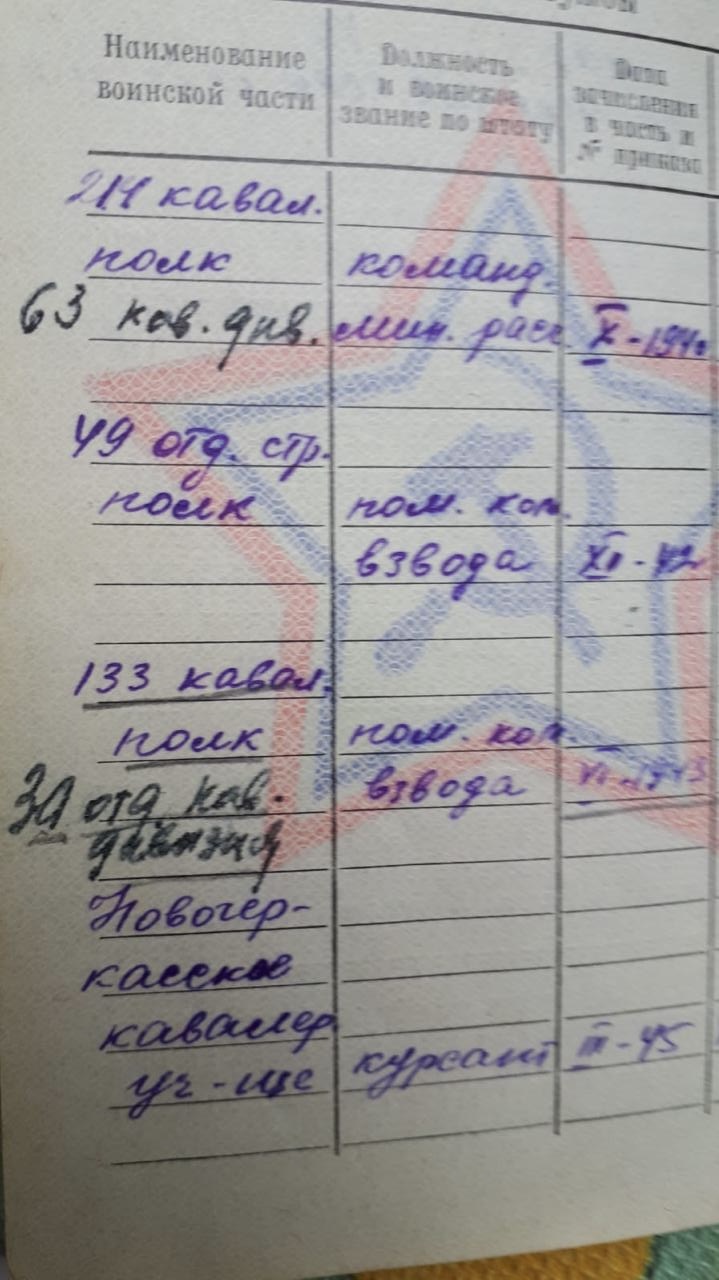 Наименование воинской части
Должность и воинское звание по штату
Дата зачисления в часть и № приказа
214 кавал.
полк команд.
63 кав. див. мин. расч. X-194
49 отд. стр.
полк пом. ком.
взвода XII-42
133 кавал.
полк пом. ком.
30 отд кав. взвода VI-1943
дивизия
Новочер-
касское
кавалер
уч-ще курсант III-45